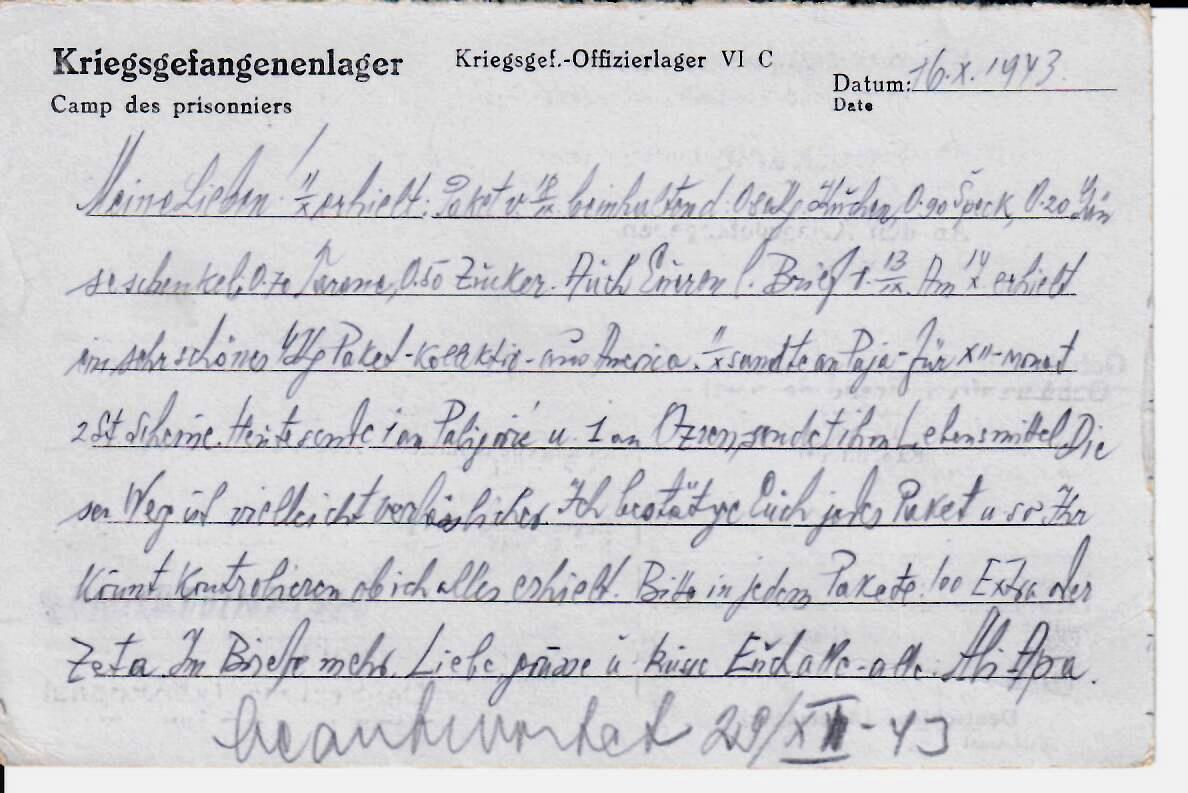 Kriegsgefangenenlager
Kriegsgef.-Offizierlager VI C
Camp des prisonniers
Datum: 16.X.1943.
Date
Meine Lieben! 11/X erhielt: Paket v. 18/IX beinhaltend: Kuchen, 0.90 Speck, 0.20 Gän
seschenkel, 0.70 0.50 Zucker. Auch Euren l. Brief v. 13/IX. Am 14/X erhielt
ein sehr schönes Paket-Kollektiv-aus America. 11/X sandte an Paja-für XII-monat
2 St Scheine. Heute sende 1 an u. 1 an Ozren, sendet ihm Lebensmittel. Die
ser Weg ist vielleicht verlässlicher. Ich bestätige Euch jedes Paket u so Ihr
Könnt Kontrolieren ob ich alles erhielt. Bitte in jedem Pakete 100 Extra der
Zeta. Im Briefe mehr. Liebe, grüsse u küsse Euch alle-alle. Apa.
beantwortet 29/XII-43